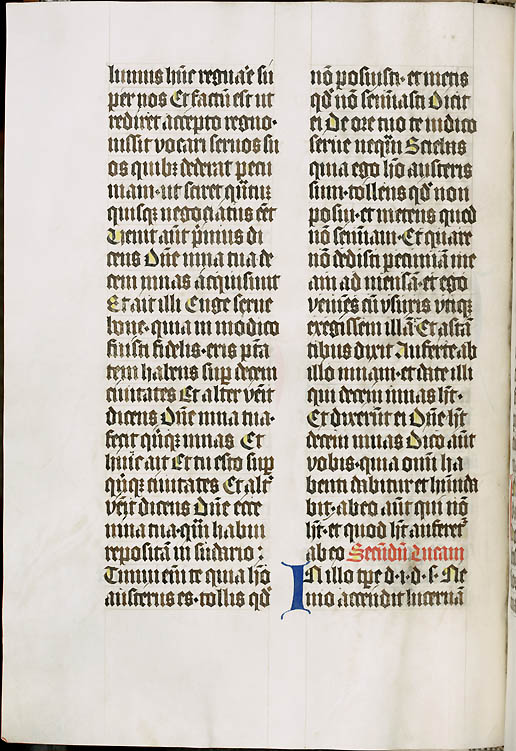 lumus hūc regnar̄e sū
per nos Et factū est ut
rediret accepto regno·
iussit vocari seruos su
os quibꝫ dederat pecu
niam·ut sciret q̄ntū
quisqꝫ negociatus eēt
Uenit aūt p̄mus di
cens Dn̄e mna tua de
cem mnas acquisiuit
Et ait illi Euge serue
bone·quia in modico
fuisti fidelis·eris ptā
tem habens sup̄ decem
ciuitates Et alter ven̄it
dicens Dn̄e mna tua·
fecit qn̄qꝫ mnas Et
huic ait Et tu esto sup̄
qn̄qꝫ ciuitates Et alt̄
ven̄it dicens Dn̄e ecce
mna tua·qm̄ habui
repositā in sudario:
Timui em̄ te quia hō
austerus es·tollis qd̄
nō posuisti·et metis
qd̄ nō semīasti Dicit
ei De ore tuo te iudico
serue neqūā Sciebas
quia ego hō austerus
sum·tollens qd̄ non
posui·et metens quod
nō semīaui·Et quare
nō dedisti pecuniā me
am ad mensā·et ego
veniēs cū vsuris vtiqꝫ
exegissem illā Et astā
tibus dixit Auferte ab
illo mnam·et date illi
qui decem mnas hꝫ·
Et dixerūt ei Dn̄e hꝫ
decem mnas Dico aūt
vobis·quia omī ha
benti dabitur et hūda
bit·ab eo aūt qui nō
hꝫ·et quod hꝫ auferet̄
ab eo Secūdū lucam
IN illo tp̄e d·i·d·s· Ne
mo accendit lucernā